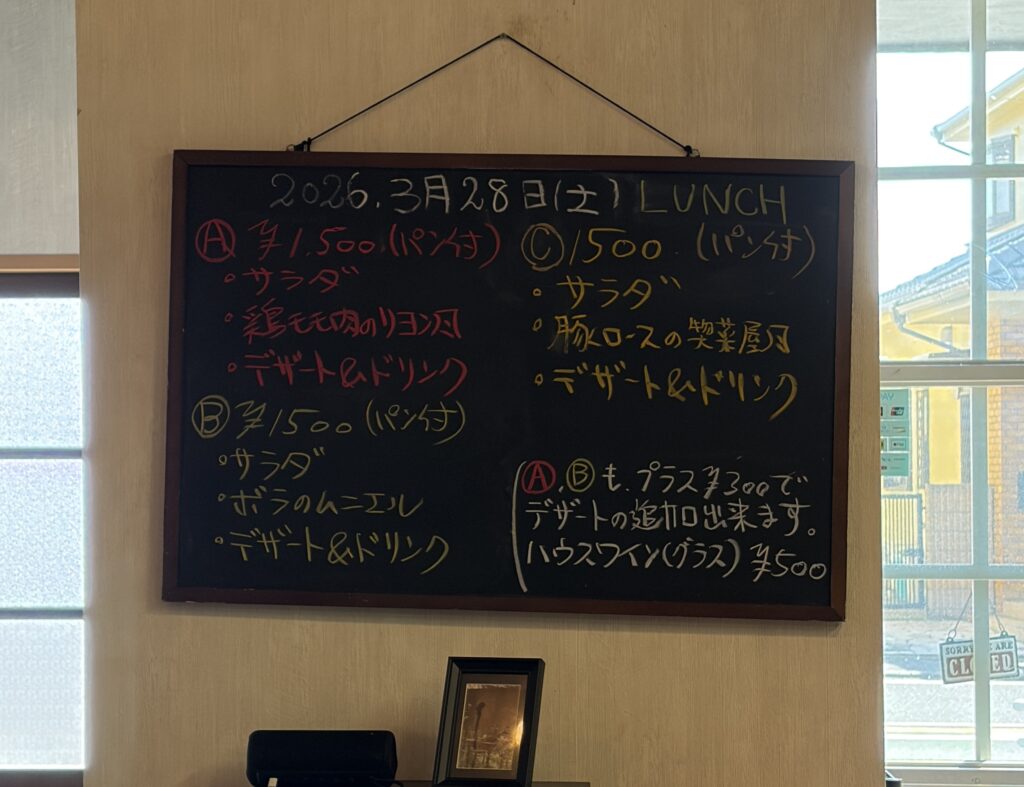 2026.3月28日(土) LUNCH
Ⓐ ¥1.500.(パン付)
・サラダ
・鶏モモ肉のリヨン风
・デザート&ドリンク
Ⓑ ¥1500 (パン付)
・サラダ
・ボラのムニエル
・デザート&ドリンク
Ⓒ 1500.(パン付)
・サラダ
・豚ロースの惣菜屋风
・デザート&ドリンク
Ⓐ.Ⓑも.プラス¥300で
デザートの追加出来ます。
ハウスワイン(グラス)¥500
PAY
SORRY WE ARE
CLOSED